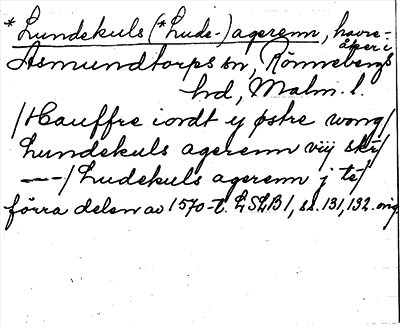 *Lundekuls (*Lude-) agerenn, havre-
åker i
Asmundtorps sn, Rönnebergs
hd, Malm. l.
/Hauffre iordt y østre wong/
Lundekuls agerenn vij skr/
—-/ Ludekuls agerenn j te/
förra delen av 1570-t. LSLB 1, ss. 131, 132. orig.